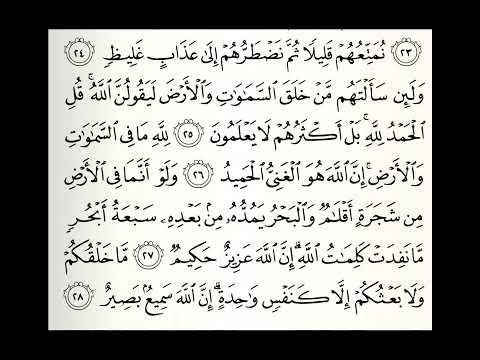 ٢٣ نُمَتِّعُهُمْ قَلِيلًا ثُمَّ نَضْطَرُّهُمْ إِلَىٰ عَذَابٍ غَلِيظٍ ٢٤
وَلَئِن سَأَلْتَهُم مَّنْ خَلَقَ السَّمَاوَاتِ وَالْأَرْضَ لَيَقُولُنَّ اللَّهُ ۚ قُلِ
الْحَمْدُ لِلَّهِ ۚ بَلْ أَكْثَرُهُمْ لَا يَعْلَمُونَ ٢٥ لِلَّهِ مَا فِي السَّمَاوَاتِ
وَالْأَرْضِ ۚ إِنَّ اللَّهَ هُوَ الْغَنِيُّ الْحَمِيدُ ٢٦ وَلَوْ أَنَّمَا فِي الْأَرْضِ
مِن شَجَرَةٍ أَقْلَامٌ وَالْبَحْرُ يَمُدُّهُ مِن بَعْدِهِ سَبْعَةُ أَبْحُرٍ
مَّا نَفِدَتْ كَلِمَاتُ اللَّهِ ۗ إِنَّ اللَّهَ عَزِيزٌ حَكِيمٌ ٢٧ مَّا خَلْقُكُمْ
وَلَا بَعْثُكُمْ إِلَّا كَنَفْسٍ وَاحِدَةٍ ۗ إِنَّ اللَّهَ سَمِيعٌ بَصِيرٌ ٢٨